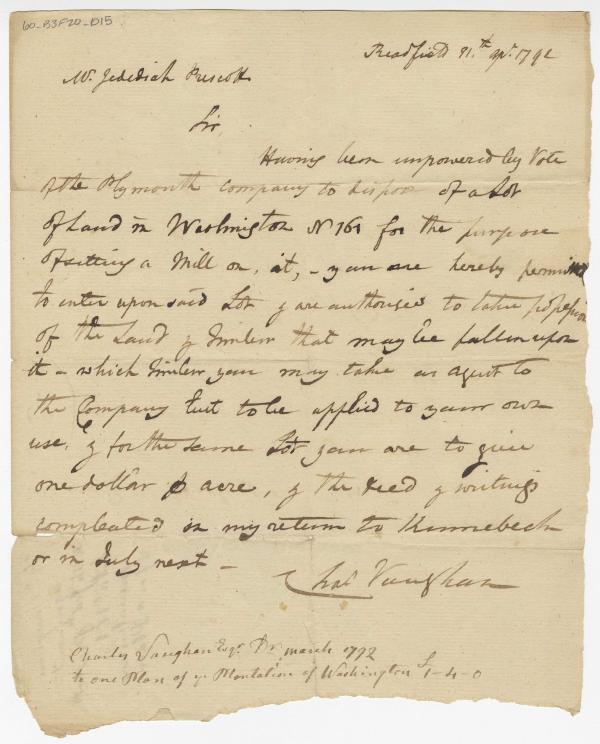 60-B3F20-D15
Readfield 31.th apr. 1792
Mr. Jedediah Prescott
Sir
Having been impowered by Vote
of the Plymouth Company to dispose of a Lot
of Land in Washington N 161 for the purpose
of setting a Mill on, it, - you are hereby permitted
to enter upon said Lot & are authorised to take possession
of the Land & Timber that may be fallen upon
it - which Timber you may take as agent to
the Company but to be applied to your own
use, & for the same Lot you are to give
one dollar p acre, & the deed & writings
compleated on my return to Kennebeck
or in July next -
Chas Vaughan
Charles Vaughan Esqr. Dr march 1792
to one Plan of ye Plantation of Washington £1-4-0